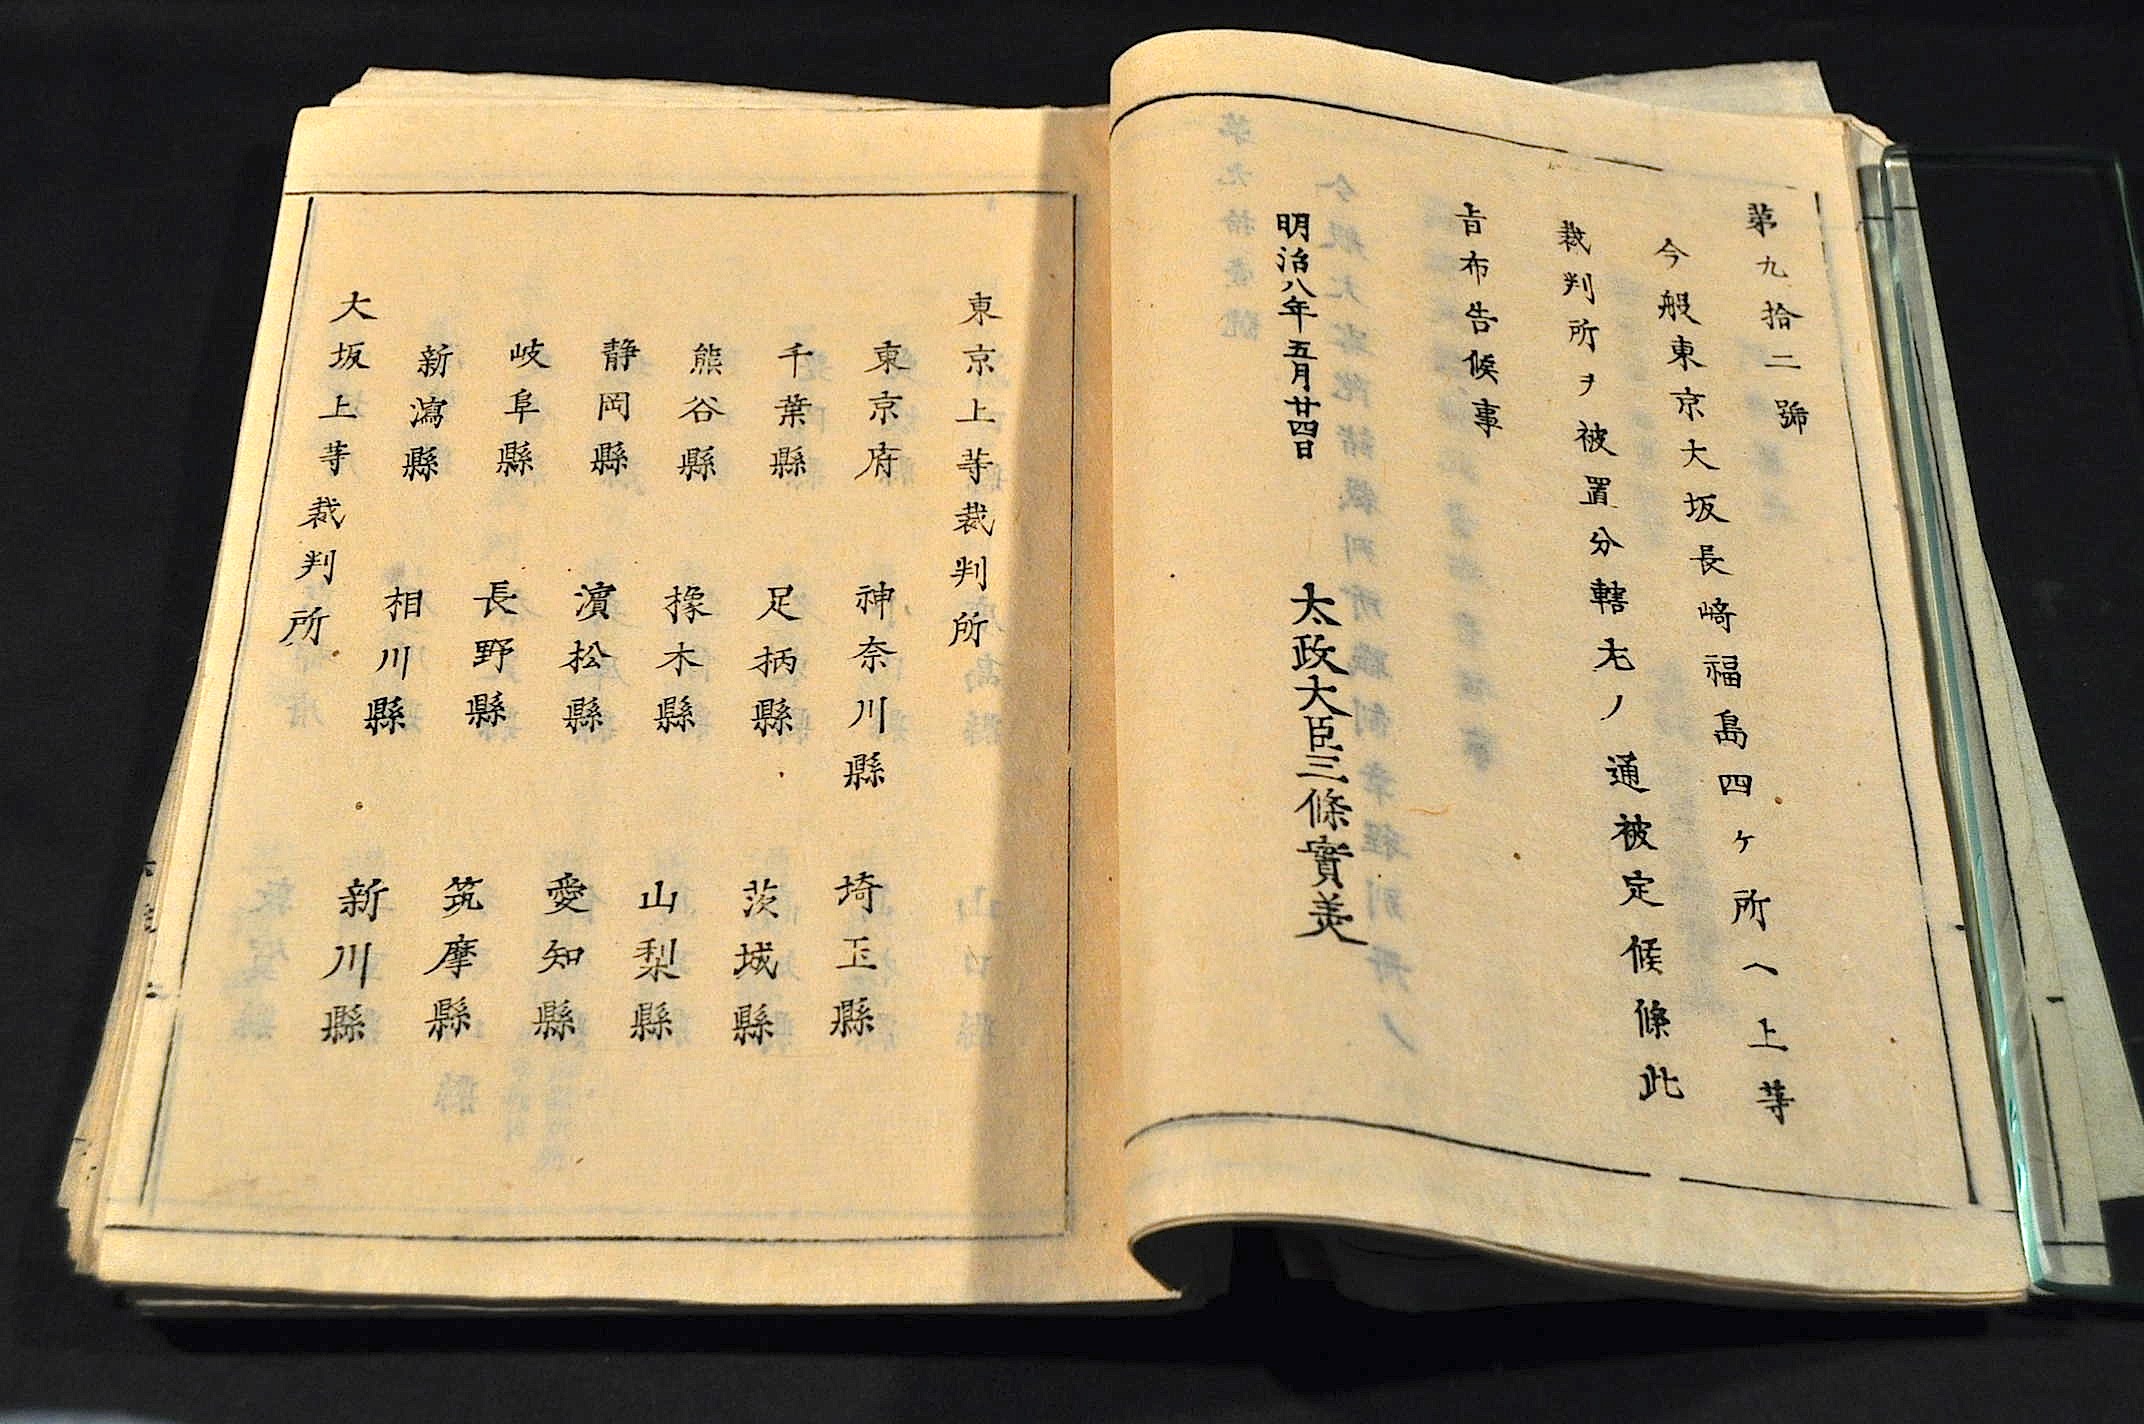 第九拾二號
今般東京大坂長崎福島四ヶ所ヘ上等
裁判所ヲ被置分轄左ノ通被定候條此
旨布告候事
明治八年五月廿四日 太政大臣三條實美
東京上等裁判所
東京府 神奈川縣 埼玉縣
千葉縣 足柄縣 茨城縣
熊谷縣 橡木縣 山梨縣
静岡縣 濱松縣 愛知縣
岐阜縣 長野縣 筑摩縣
新瀉縣 相川縣 新川縣
大坂上等裁判所